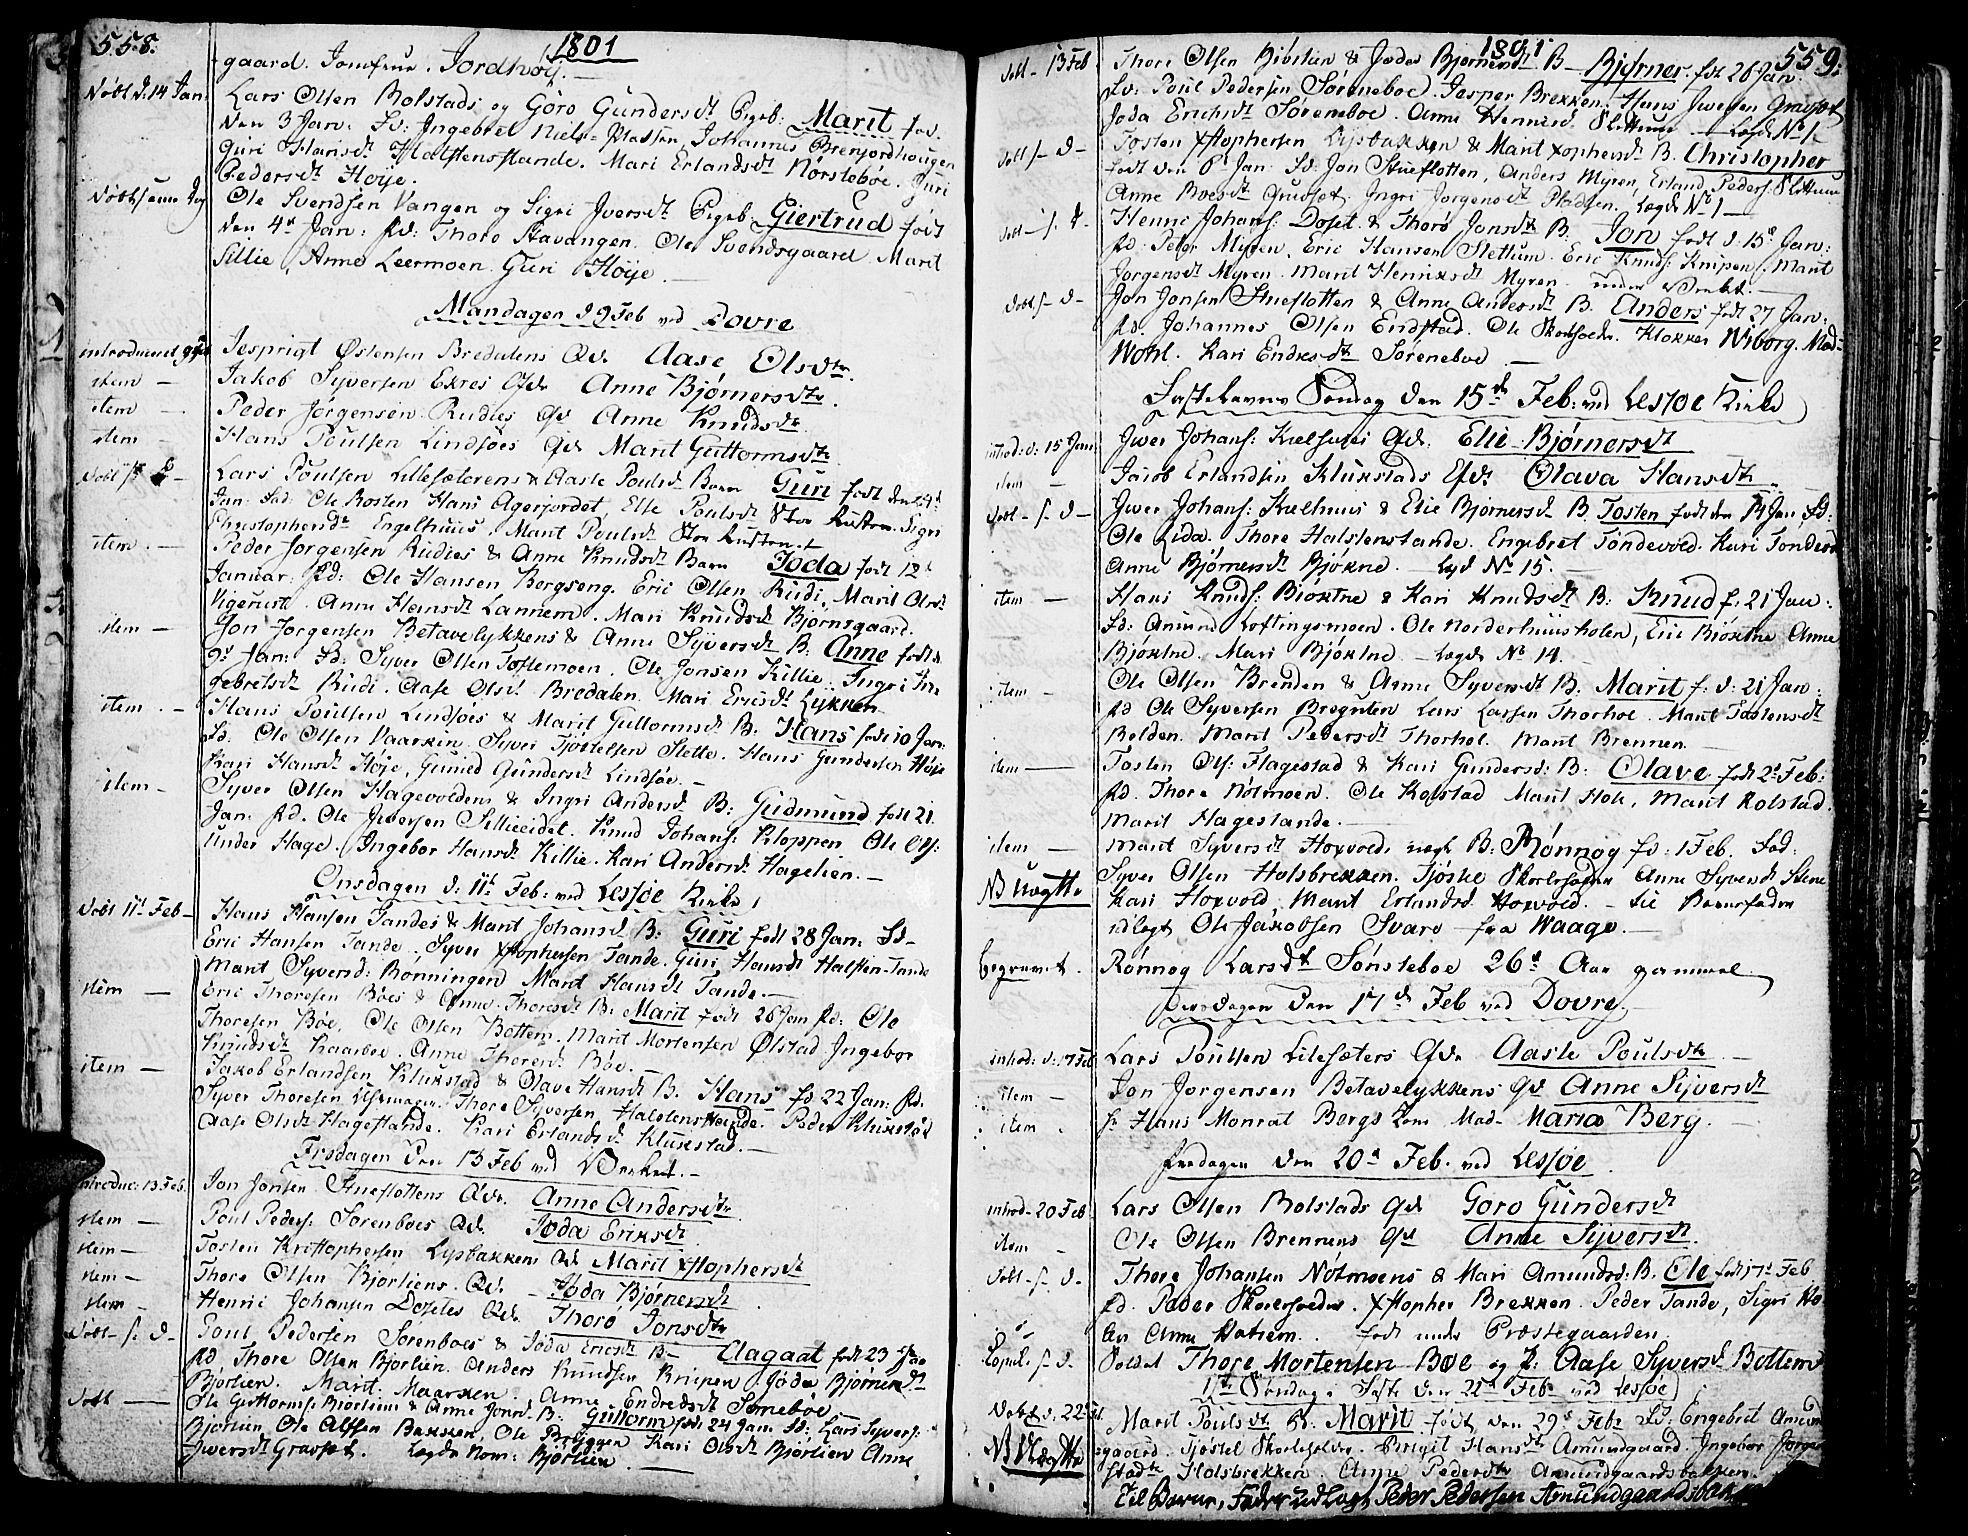 558.
1801
gaard. Jomfrue. Jordhøy.
Døbt d. 14 Jan. Lars Olsen Bolstads og Goro Gundersdt Pigeb: Marit fød.
den 3 Jan: Fd: Ingebret Niels= Pladsen, Johannes Brenjordhougen
Guri Hansdt Halstenstande. Mari Erlandsdt Nørstebøe. Guri
Pedersdt Høije.
Døbt samme Dag Ole Svendsen Vangen og Sigri Iversdt Pigeb. Giertrud født
den 4de Jan: Fd: Thore Stavangen. Ole Svendsgaard Marit
Sillie, Anne Leermoen. Guri Høije.
Mandagen d 9 Feb ved Dovre
introduceret 9 Feb Jesprigt Østensen Bredalens Qv. Aase Olsdtr.
item Jakob Syversen Ekres Qvd Anne Bjørnersdtr.
item Peder Jørgensen Rudies Qv Anne Knudsdtr
item Hans Poulsen Lindsøes Qv Marit Guttormsdtr
Døbt s. d. Lars Poulsen Lillesæterens & Aaste Poulsd Barn Guri født den 24d
Jan: Fad: Ole Rosten Hans Agerjordet, Else Poulsdt Stor Rusten Sigri
Christophersdt Engelhuus, Marit Poulsdt Stor Rusten.
item. Peder Jorgensen Rudies & Anne Knudsdt Barn Joda født 12d
Januar: Fd: Ole Hansen Bergseng. Eric Olsen Rudi, Marit Olsdt
Vigerust. Anne Hemsdt Lannem. Mari Knudsdt Bjørnsgaard.
item Jon Jorgensen Betavelykkens & Anne Syversdt B: Anne født d.
9d Jan: Fd: Syver Olsen Toftemoen. Ole Jonsen Killie. Ingri In=
gebretsdt Rudi. Aase Olsdt Bredalen. Mari Ericsdt Lykken
item. Hans Poulsen Lindsøes & Marit Guttormsdt B. Hans født 10 Jan:
Fd. Ole Olsen Vaarkin. Syver Tjøstelsen Slette. Hans Gundersen Høje
Kari Hansdt Høje, Gunild Gundersdt Lindsøe.
item Syver Olsen Hagevoldens & Ingri Andersd B: Gudmund født 21.
Jan. Fd. Ole Iversen Sillieeidet. Knud Johans: Kloppen Ole Ols:
Under Hage. Ingebor Hansdt Killie. Kari Andersdt Hagelien.
Onsdagen d: 11d Feb: ved Lesjøe Kirke
Døbt 11d Feb Hans Hansen Tandes & Marit Johansd B: Guri født 28 Jan: Fd
Eric Hansen Tande. Syver Xstophersen Tande. Guri Hansdt Halsten-Tande
Marit Syversd: Bonningen Marit Hansdt Tande.
item Eric Thoresen Böes & Anne Thoresdt B: Marit født 26 Jan Fd: Ole
Thoresen Böe. Ole Olsen Bottem. Marit Mortensen Ølstad Ingebor
Knudsdt Kaarboe. Anne Thoresd. Böe.
item Jakob Erlandsen Klukstad & Olave Hansdt B. Hans fd 22 Jan: Fd.
Syver Thoresen Thore Syversen Halstenstande. Peder Klukstad
Aase Olsdt Hagestande. Kari Erlandsd Klukstad.
Fredagen Den 13 Feb ved Verket.
introduc: 13 Feb. Jon Jonsen Stueflottens Qv. Anne Andersdtr
item Poul Peders: Sorenboes Qv. Joda Eriksdt
item Tosten Kristophersen Lysbakkens Qv Marit Xstophersdt
item Thore Olsen Bjorliens Qv. Joda Bjørnersdt
item Henric Johansen Dosetes Qv. Thoro Jonsdtr
Døbt s. d. Poul Pedersen Sorenboes & Joda Ericsdt B. Aagaat født 23 Jan
Fd. Thore Olsen Bjorlien. Anders Knudsen Knipen Joda Bjornersdt
Bjorlien. Marit Maarken. Anne Endresdt Sorneboe
Døbt Ole Guttorms: Bjorliens & Anne Jonsd. B: Guttorm født 24 Jan. Fd: Lars Syvers:
Bjorlien Ole Alfsen Bakken, Ole Bryggen Kari Olsdt Bjorlien Anne
Iversdt Gravset. Lægds Nom: Bjorlien
559.
1801
Døbt 13 Feb Thore Olsen Bjorlien & Joda Bjornersdt B. Bjørner. fdt 26 Jan:
Fd: Poul Pedersen Søreneboe. Jesper Brekken. Hans Iversen Gravset
Joda Erichsdt Søreneboe. Anne Henricsd. Slettum Lægds No 1.
Døbt s. d. Tosten Xstophersen Lysbakken & Marit Xstophersdt B. Christopher
født den 8d Jan. Fd: Jon Stueflotten, Anders Myren, Erland Peders: Slettum
Anne Boesdt Qvidset. Ingri Jorgensdt Pladsen. Lægds No 1
Døbt s. d. Henric Johans: Doset & Thoro Jonsdt B: Jon født d: 15d Jan:
Fd: Peter Myren. Eric Hansen Slettum. Eric Knuds: Knipen. Marit
Jorgensdt Myren. Marit Henriksdt Myren. under Verket.
Døbt s. d. Jon Jonsen Stueflotten & Anne Andersdt B. Anders født 27 Jan:
Fd: Johannes Olsen Endstad. Ole Skotsoeder. Klokker Wiborg. Mad=
Wohl. Kari Endresdt Søreneboe
Fastelavns Søndag Den 15de Feb: ved Lesjøe Kirke
introd: d: 15 Jan: Iver Johans: Kielhues Qv. Elie Bjørnersdt
item Jacob Erlandsen Klukstads Qv. Olava Hansdt.
Døbt s. d. Iver Johans: Kielhuus & Elie Bjornersdt B. Tosten født den 14 Jan Fd:
Ole Lida. Thore Halstenstande. Engebret Tondevold. Kari Tondevold
Anne Bjørnersdt Bjøkne. Lægd No 15.
item Hans Knuds: Bjøkne & Kari Knudsdt B: Knud f: 21 Jan:
Fd: Amund Loftingsmoen. Ole Norderhuusholen, Eric Bjøkne Anne
Bjøkne. Mari Bjøkne. Lægds No 14.
item Ole Olsen Brenden & Anne Syversdt B: Marit f: d: 21 Jan:
Fd Ole Syversen Lars Larsen Thorhoe. Marit Tostensdt
Bolden. Marit Pedersdt Thorhol. Marit Brennen.
item Tosten Ols: Flagestad & Kari Gundersd: B: Olave født 2d Feb:
Fd. Thore Nolmoen. Ole Kolstad Marit Hole, Marit Kolstad.
Marit Hagestande.
item Marit Syversdt Hoxvold uægt B: Rönnög fd: 1 Feb. Fad:
NB Uægte Syver Olsen Holsbrekken. Tjøstel Skoeløeder Anne Syversdt Skene
Kari Hoxvold, Marit Erlandsd. Hoxvold. til Barnefader
udlagt Ole Jakobsen Svare fra Waage.
begravet. Rönnog Larsdt Sønsteboe 26d Aar gammel
Tirsdagen Den 17d Feb ved Dovre
introd: d: 17 Feb Lars Poulsen Lilesæters Qv. Aaste Poulsdtr
item Jon Jorgensen Betavelykkens Qv Anne Syversdt
item Sr Hans Monrat Bergs Kone Mad. Maria Berg.
Fredagen den 20d Feb. ved Lesjøe
introd. 20 Feb Lars Olsen Bolstads Qv Goro Gundersdt
item Ole Olsen Brennens Qv Anne Syversdt
Døbt s. d. Thore Johansen Nolmoens & Mari Amundsd: B. Ole født 17d Feb
Fd. Peder Skoleholder. Xstopher Brekken. Peder Tande, Sigri Ho=
Anne Hatrem. Født under Præstegaarden.
Copul: s. d. Soldat Thore Mortensen Bøe og P: Aase Syversd Bottem
1ste Søndag i Faste den 22d Feb. ved Lesjøe
Døbt d. 22d Feb. Marit Poulsdt B: Marit født den Feb: Fd: Engebret Amund
NB Uægte sgaard. Tjøstel Skoleholder. Birgit Hansdt Amundgaard. Ingebor Jorgen
Holsbrekken. Anne Pedersdtr Amundgaardsbakken.
Til Barne Fader udlagt Peder Pedersen Amundgaardsbak